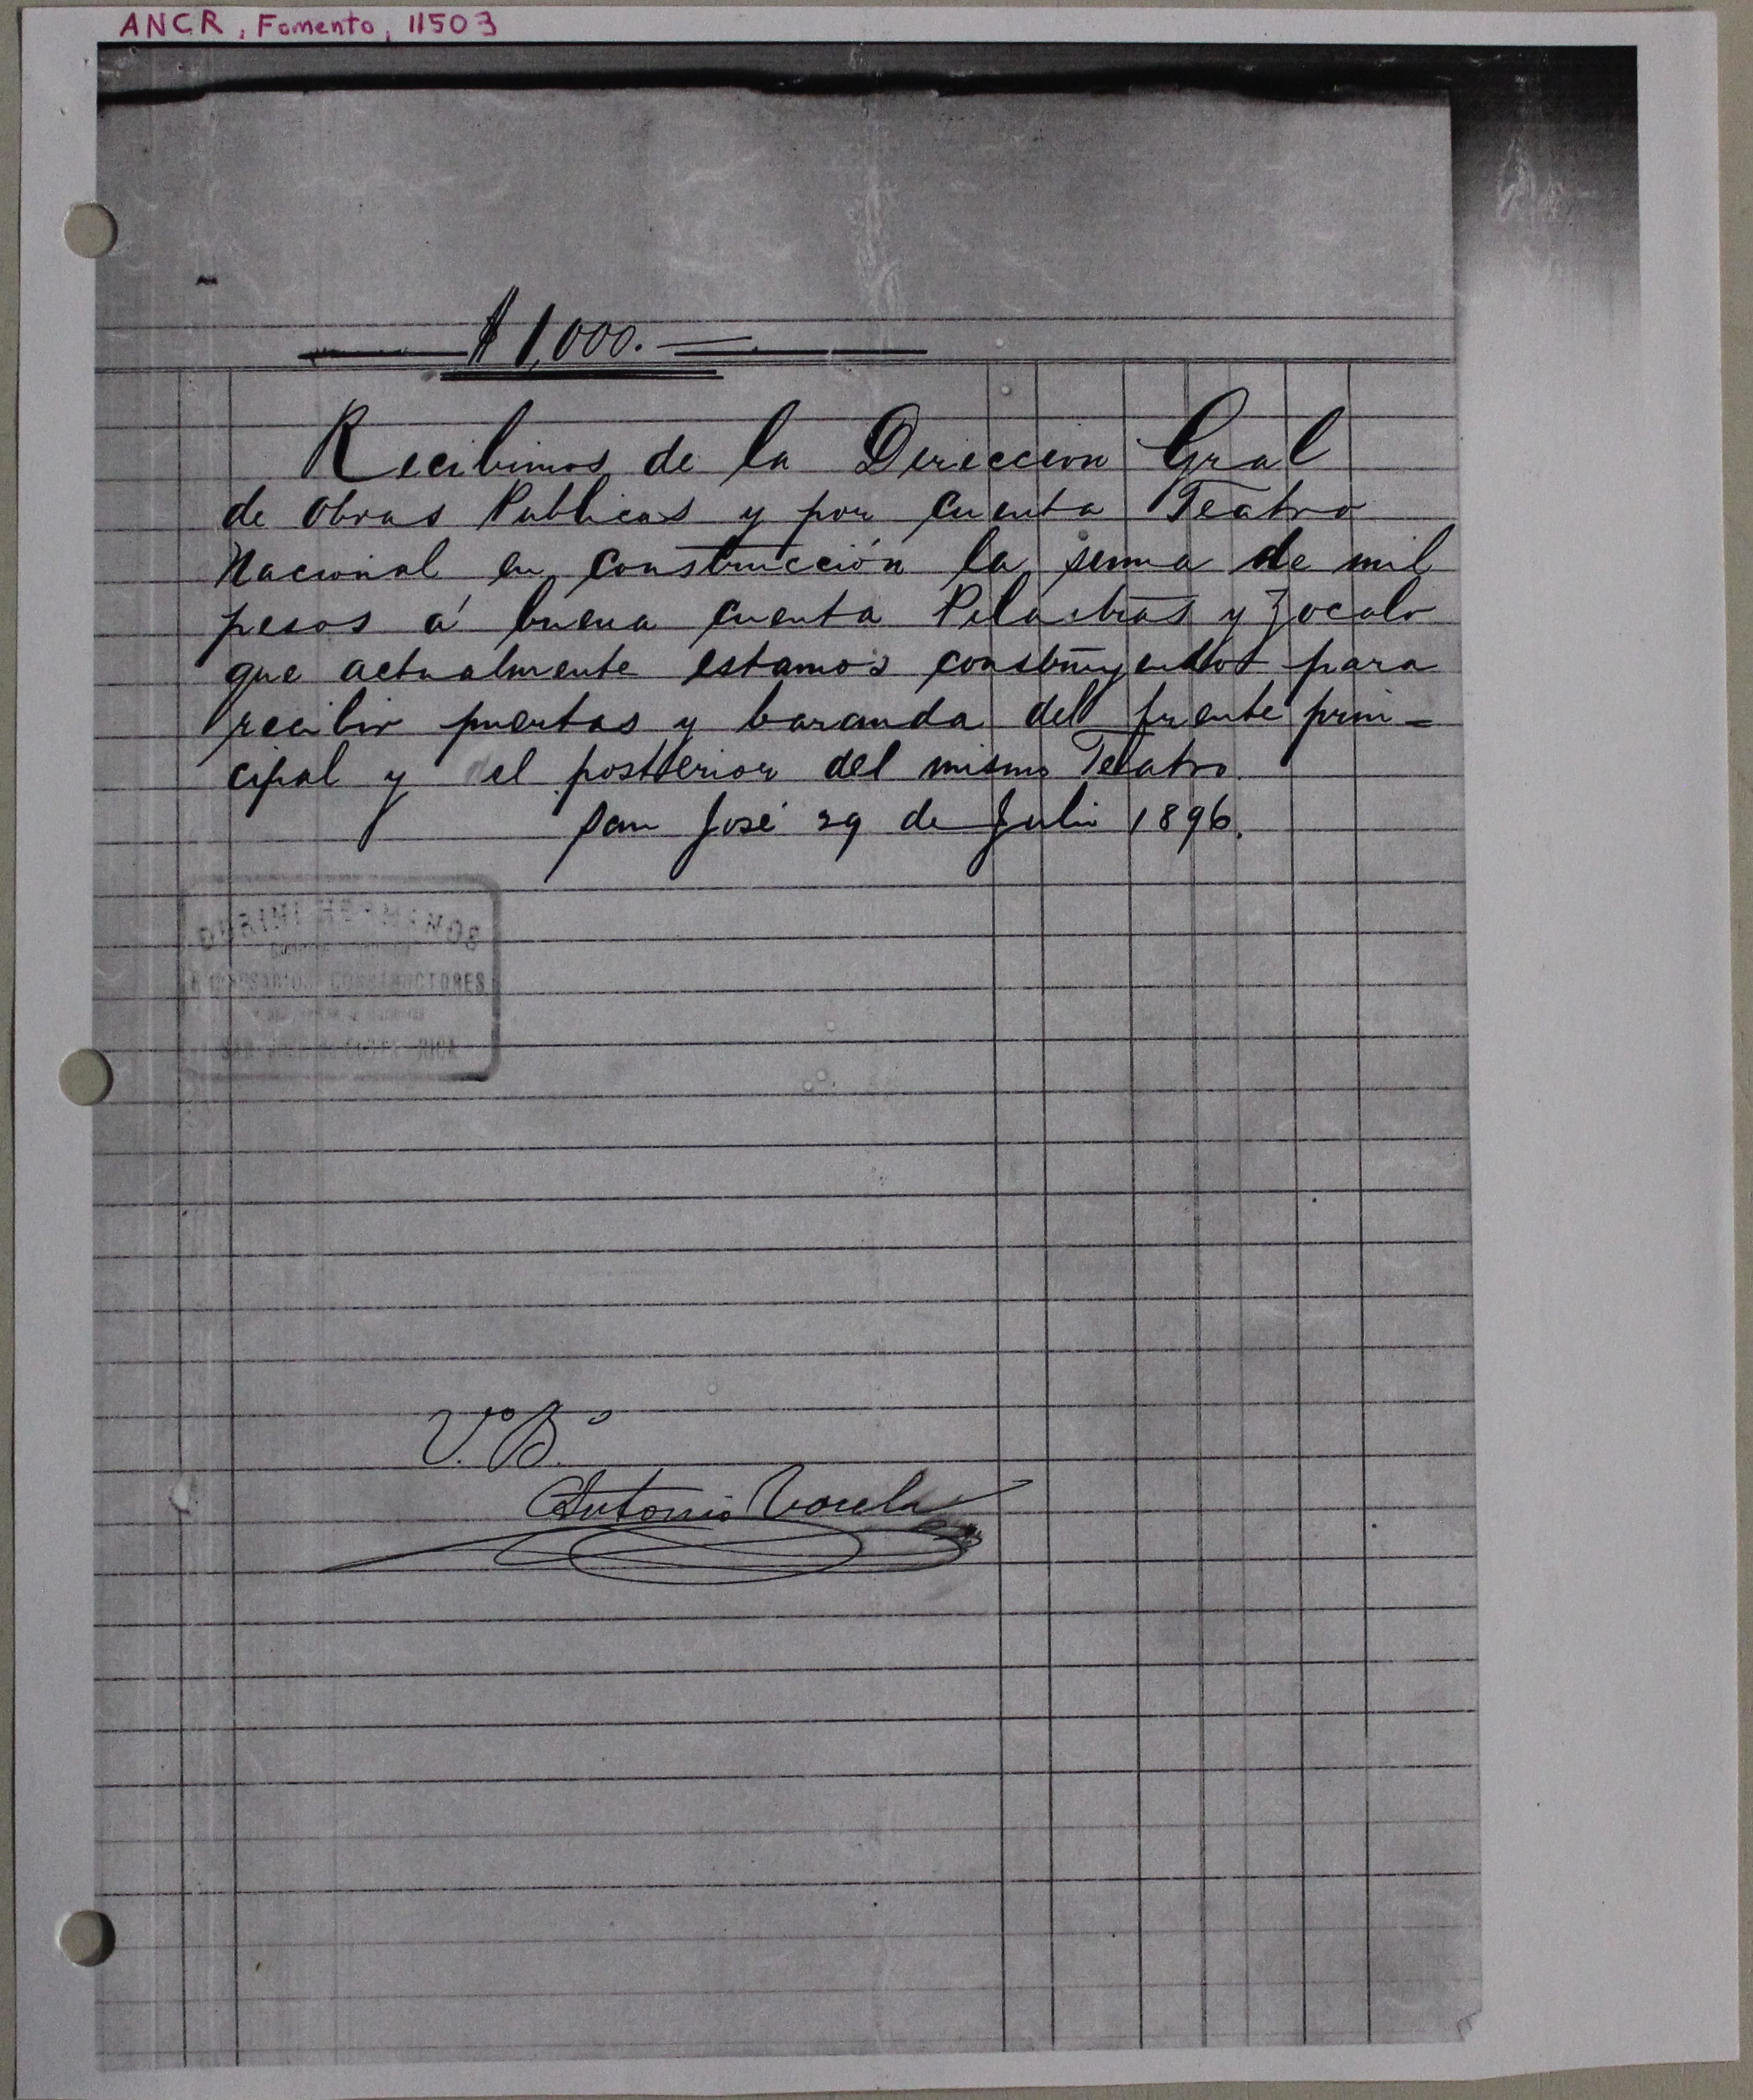 ANCR, Fomento, 11503
$ 1,000.
Recibimos de la Direccion Gral
de Obras Publicas y por cuenta Teatro
Nacional en construcción la suma de mil
pesos á buena cuenta Pilastras y Zocalo
que actualmente estamos construyendo para
recibir puertas y baranda del frente prin-
cipal y del posterior del mismo Teatro.
San José 29 de Julio 1896.
HERMANOS
CONSTRUCTORES
RICA
V.º B.º
Antonio Varela